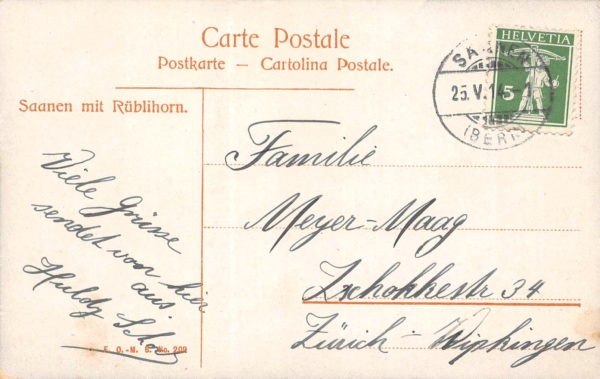 Carte Postale
Postkarte — Cartolina Postale.
HELVETIA
5
SAANEN
25.V.14
(BERN)
Saanen mit Rüblihorn.
Viele Grüsse
sendet von hier
aus
Huldy
Familie
Meyer-Maag
Zschokkestr 34
Zürich-Wipkingen
E. O.-M. B. No. 209